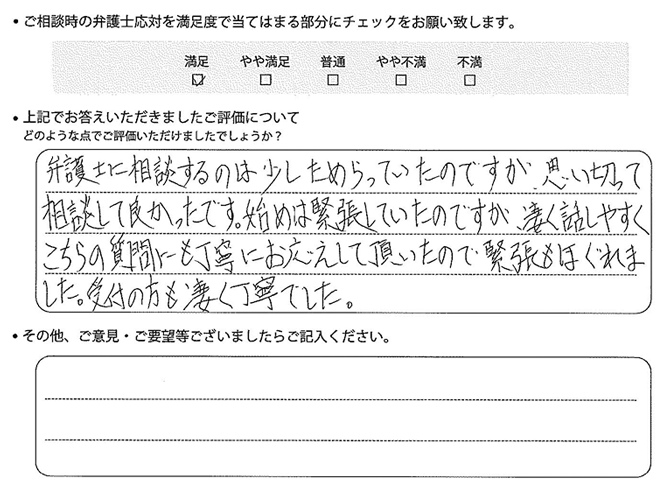 • ご相談時の弁護士応対を満足度で当てはまる部分にチェックをお願い致します。
満足 やや満足 普通 やや不満 不満
☑ □ □ □ □
• 上記でお答えいただきましたご評価について
どのような点でご評価いただけましたでしょうか？
弁護士に相談するのは少しためらっていたのですが、思い切って
相談して良かったです。始めは緊張していたのですが、凄く話しやすく
こちらの質問にも丁寧にお応えして頂いたので緊張もほぐれま
した。受付の方も凄く丁寧でした。
• その他、ご意見・ご要望等ございましたらご記入ください。